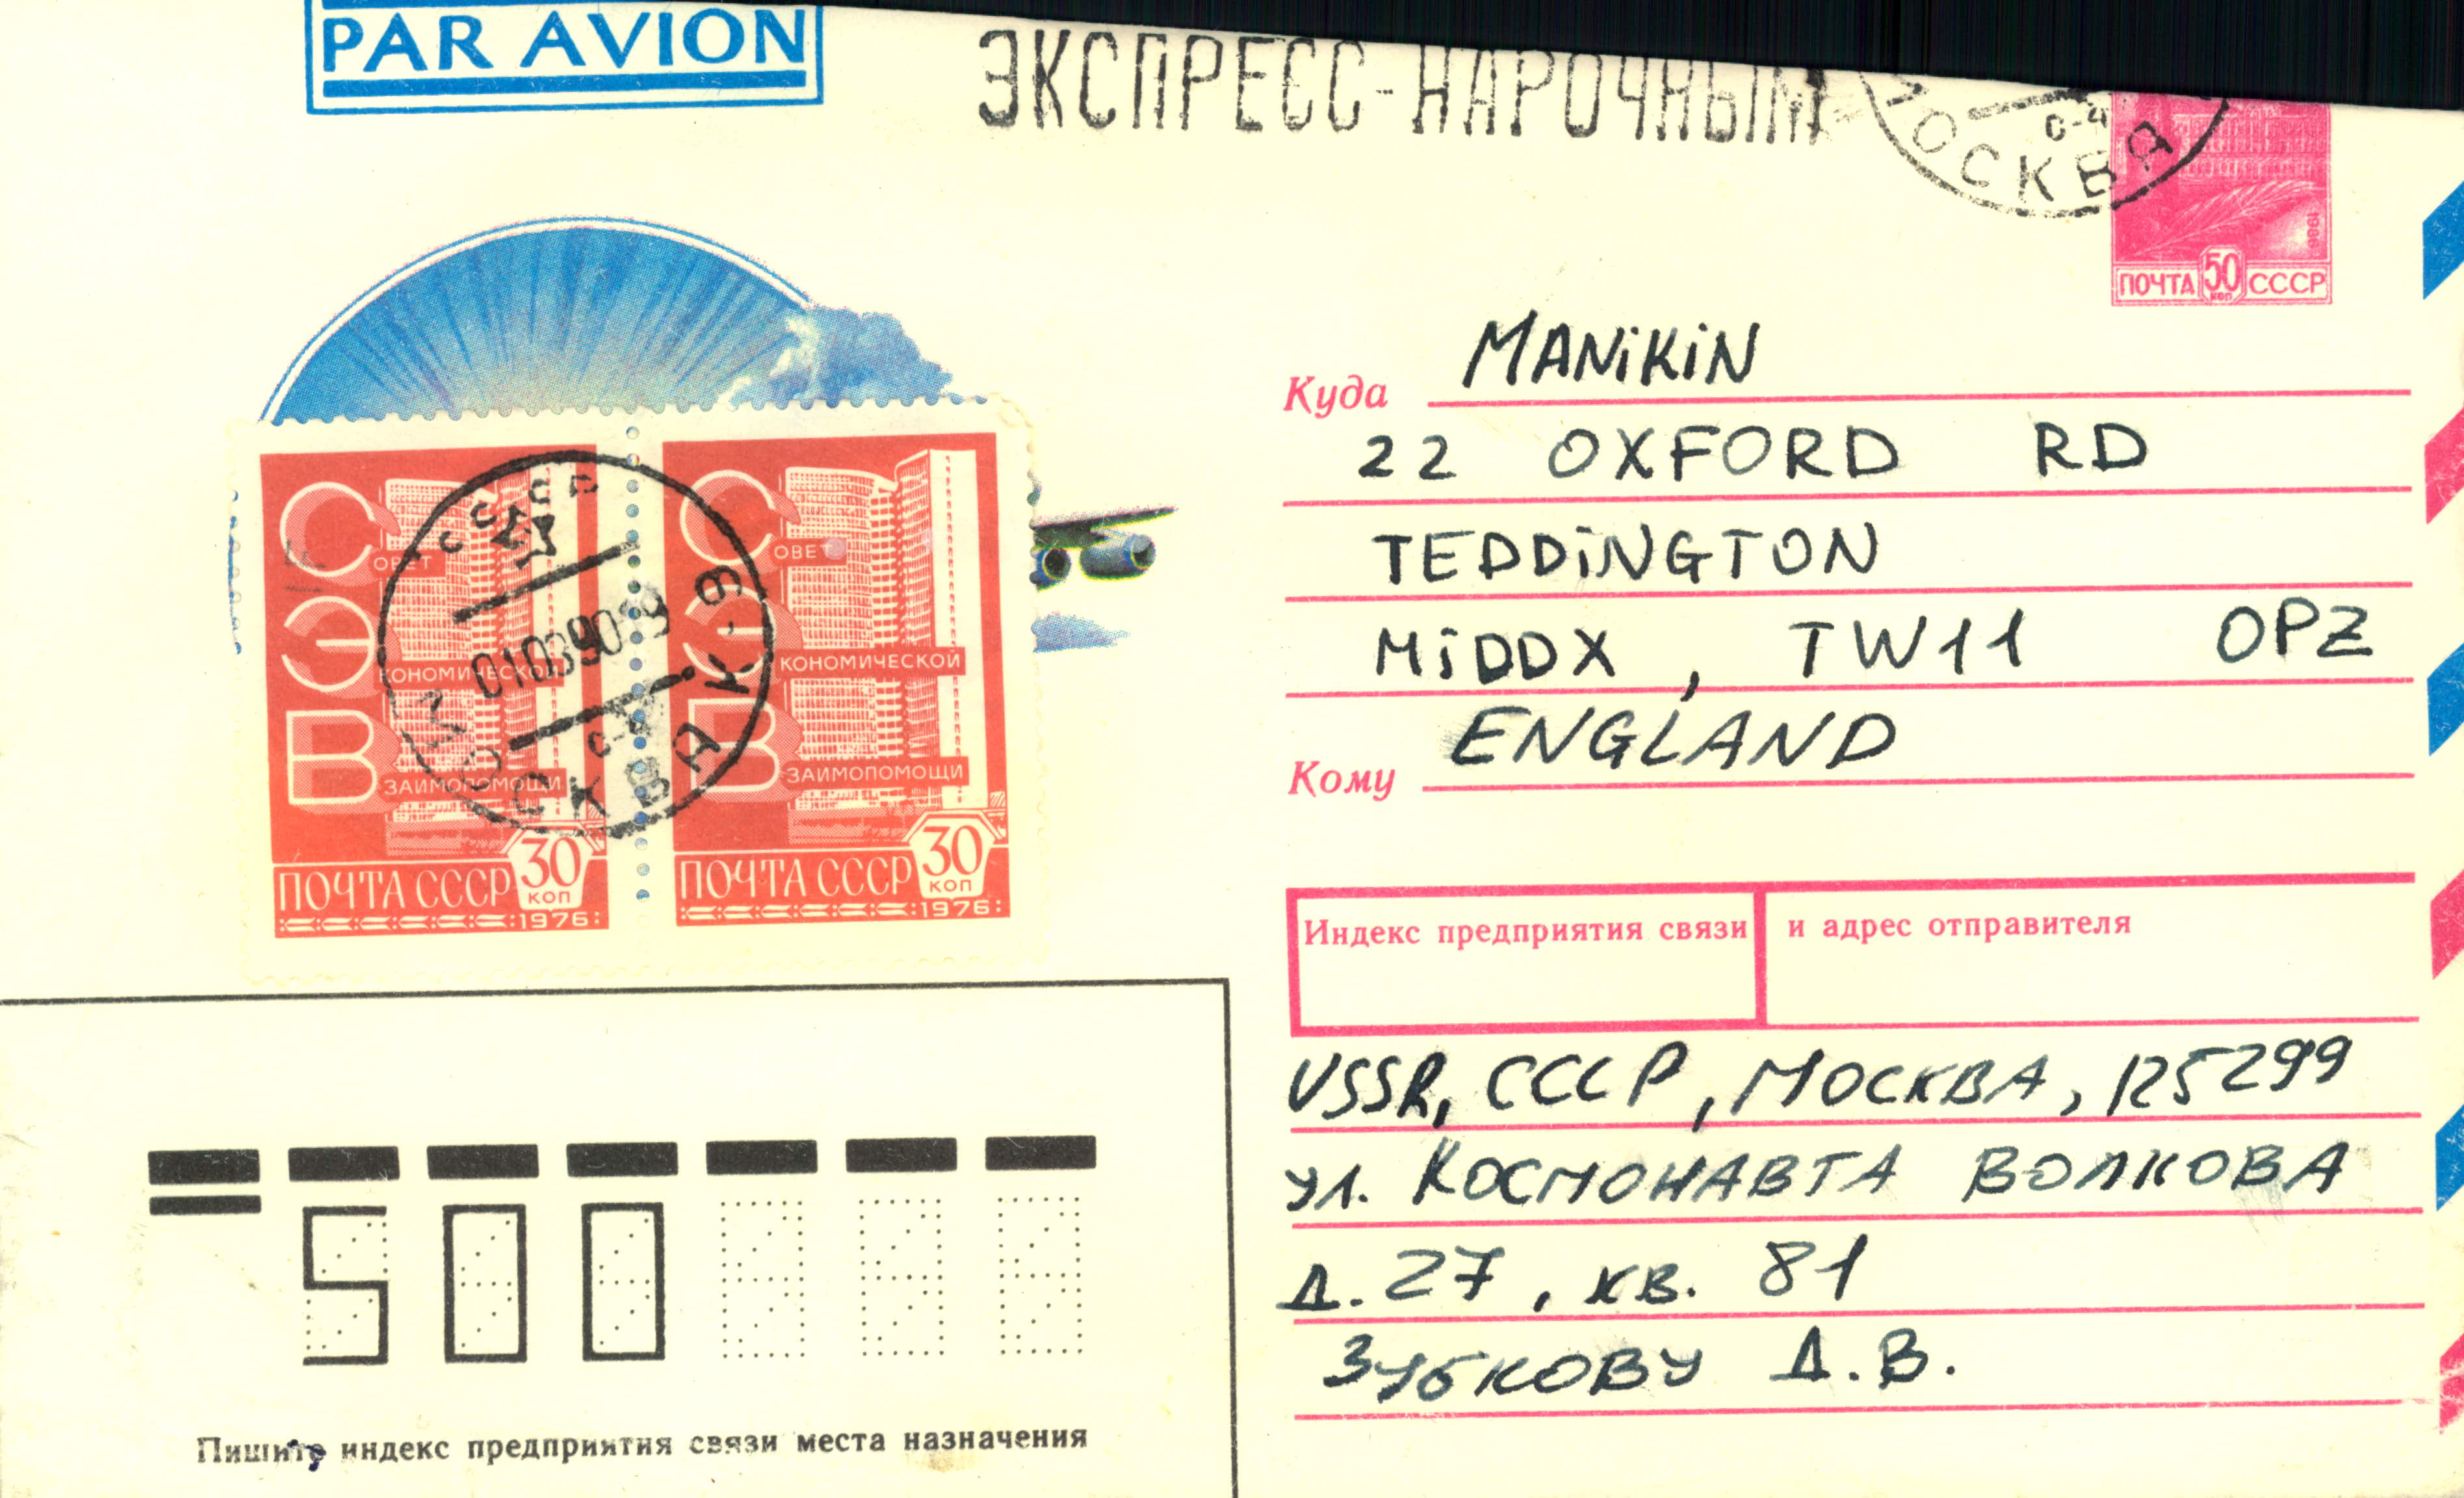 PAR AVION
ЭКСПРЕСС-НАРОЧНЫМ
МОСКВА
С-4
1986
ПОЧТА 50 КОП СССР
Куда MANiKiN
22 OXFORD RD
TEDDiNGTON
MiDDX , TW11 OPZ
Кому ENGLAND
СОВЕТ
ЭКОНОМИЧЕСКОЙ
ВЗАИМОПОМОЩИ
ПОЧТА СССР 30 КОП
1976
СОВЕТ
ЭКОНОМИЧЕСКОЙ
ВЗАИМОПОМОЩИ
ПОЧТА СССР 30 КОП
1976
СССР
010390 19
МОСКВА К-9
Индекс предприятия связи и адрес отправителя
USSR, СССР, МОСКВА, 125299
ул. КОСМОНАВТА ВОЛКОВА
д. 27, кв. 81
ЗУБКОВУ Д.В.
500
Пишите индекс предприятия связи места назначения